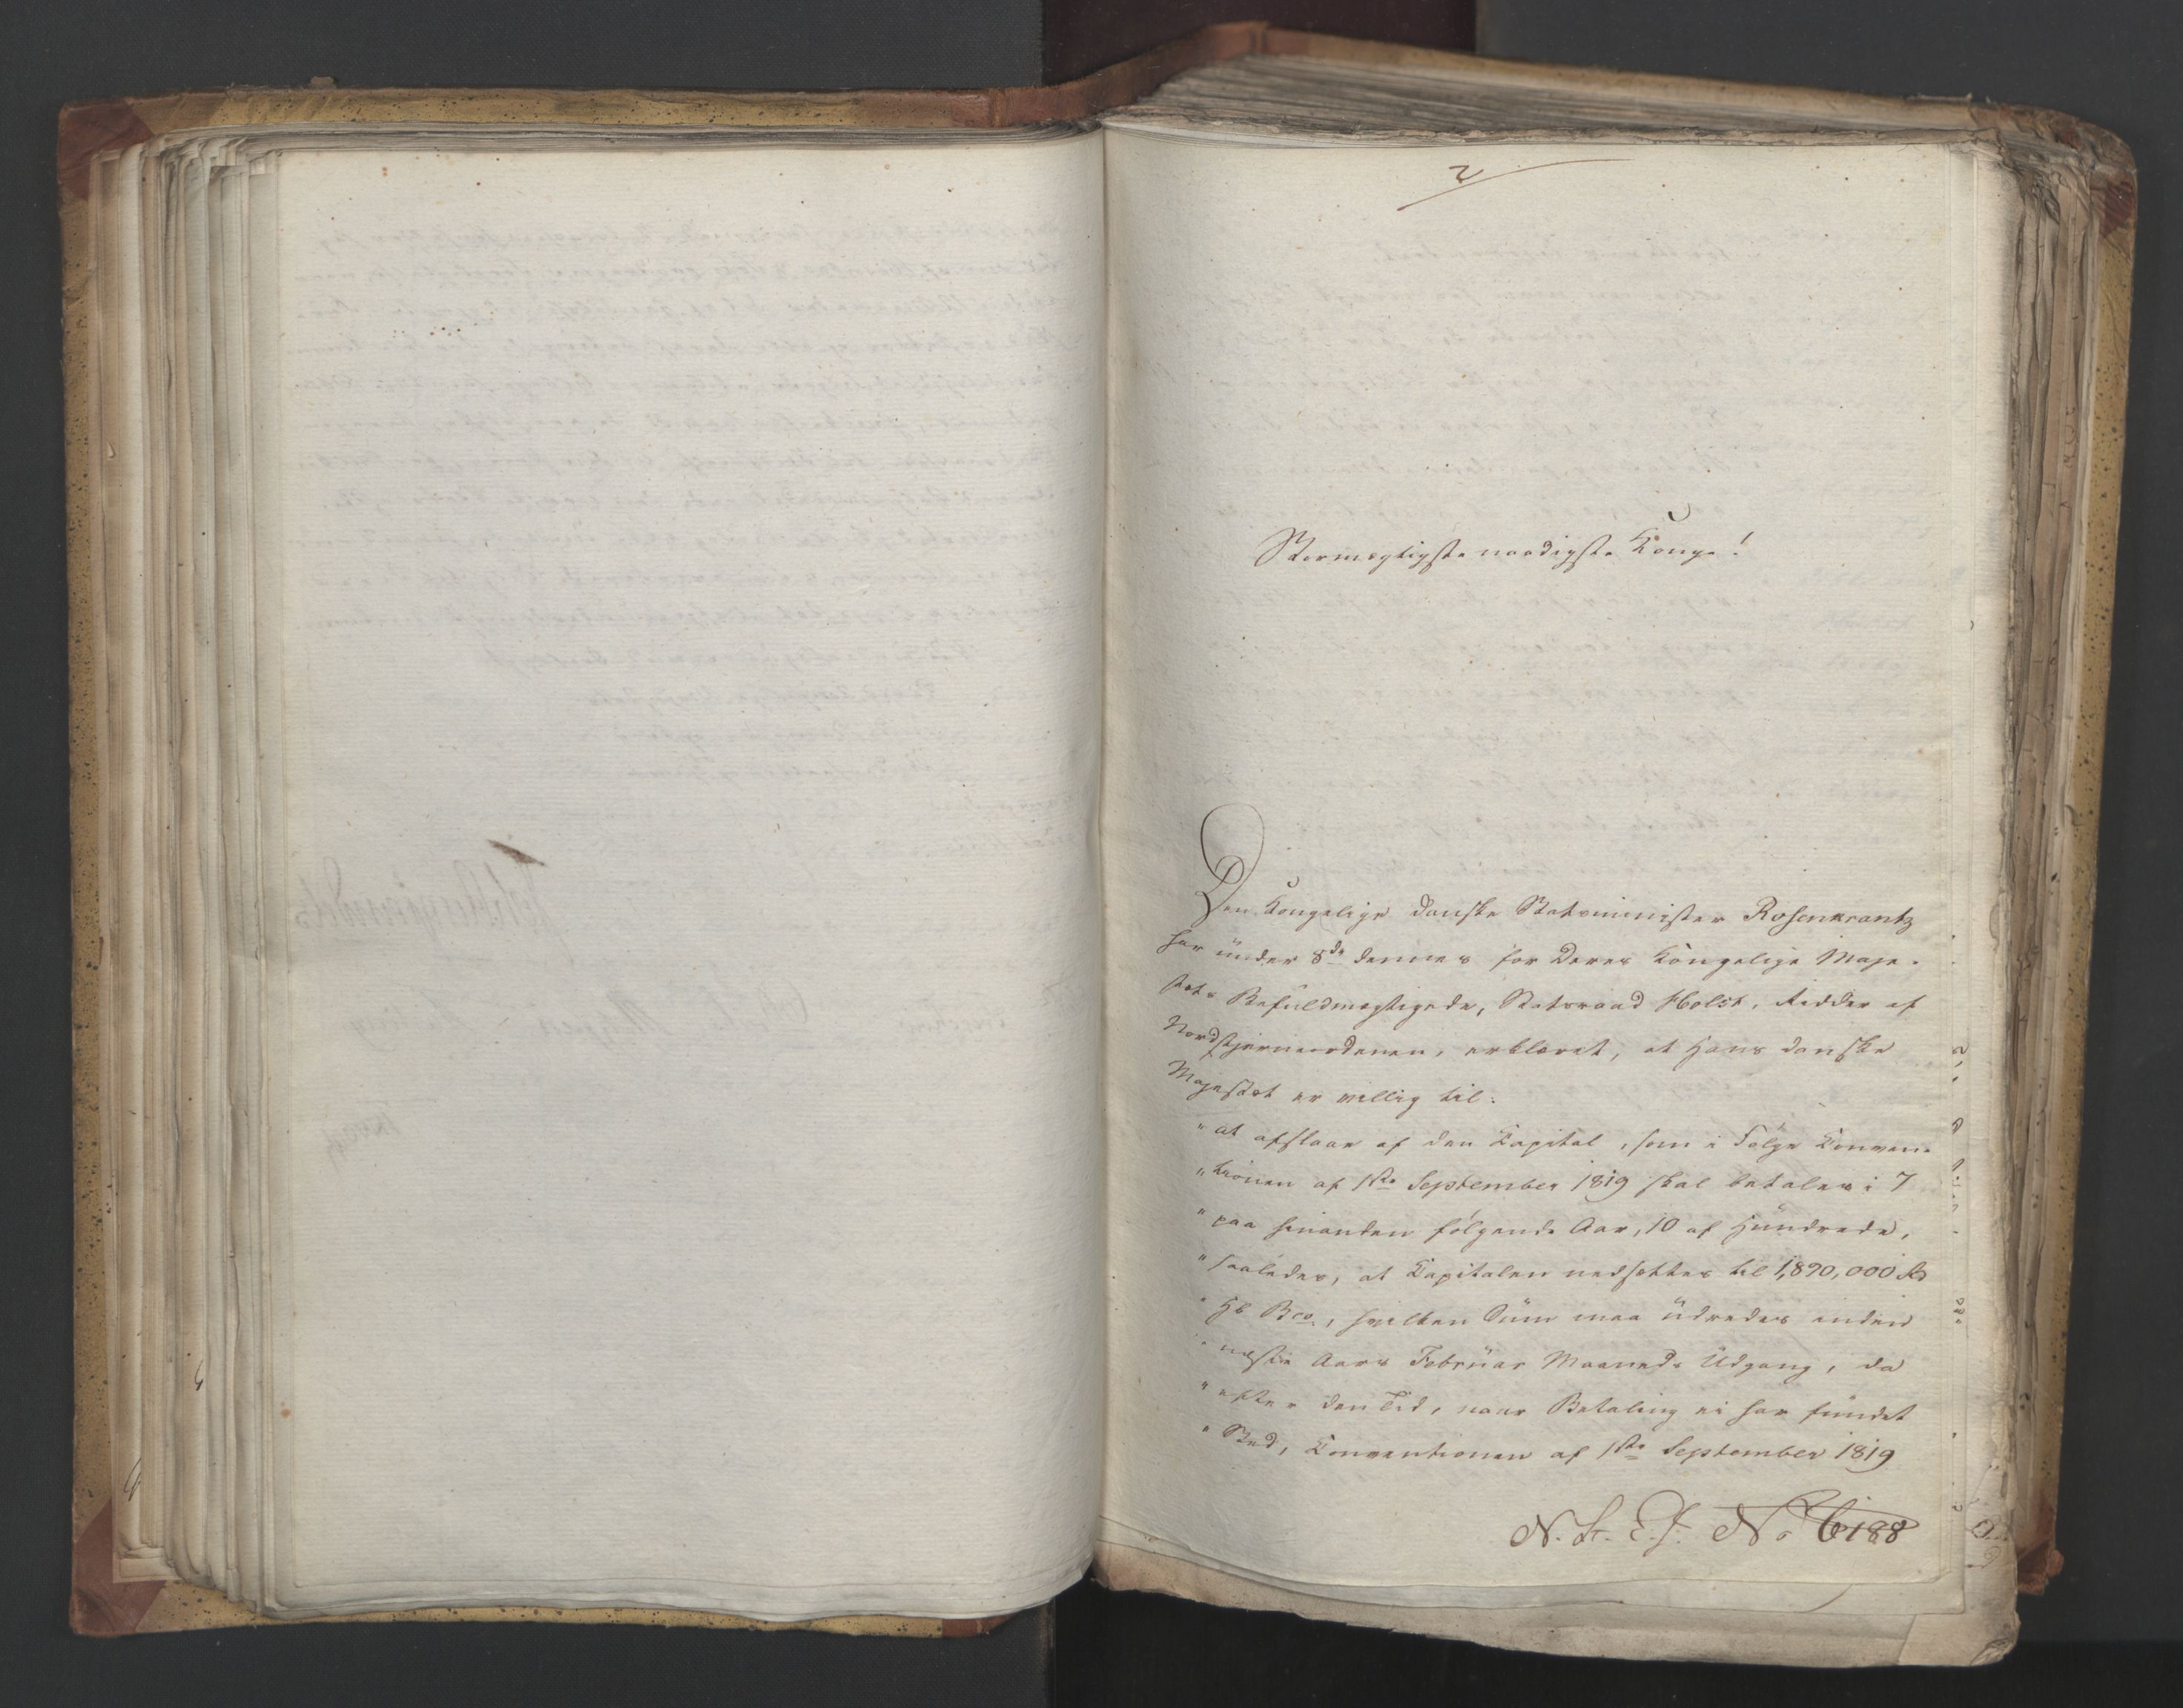 2
Stormægtigste naadigste Konge!
Den Kongelige danske Statsminister Rosenkrantz
har under 8de dennes for Deres Kongelige Maje-
stæts Befuldmægtigede, Statsraad Holst, Ridder af
Nordstjerneordenen, erklæret, at Hans danske
Majestæt er villig til:
"at afslaae af den Kapital, som i Følge Konven-
"tionen af 1ste September 1819 skal betales i 7
"paa hinanden følgende Aar, 10 af Hundrede,
"saaledes, at Kapitalen nedsættes til 1,890,000 Rd
"Hb Bco, hvilken Sum maa udredes inden
"næste Aars Februar Maaneds Udgang, da
"efter den Tid, naar Betaling ei har fundet
"Sted, Konventionen af 1ste September 1819
N. St. E. J. No 6188